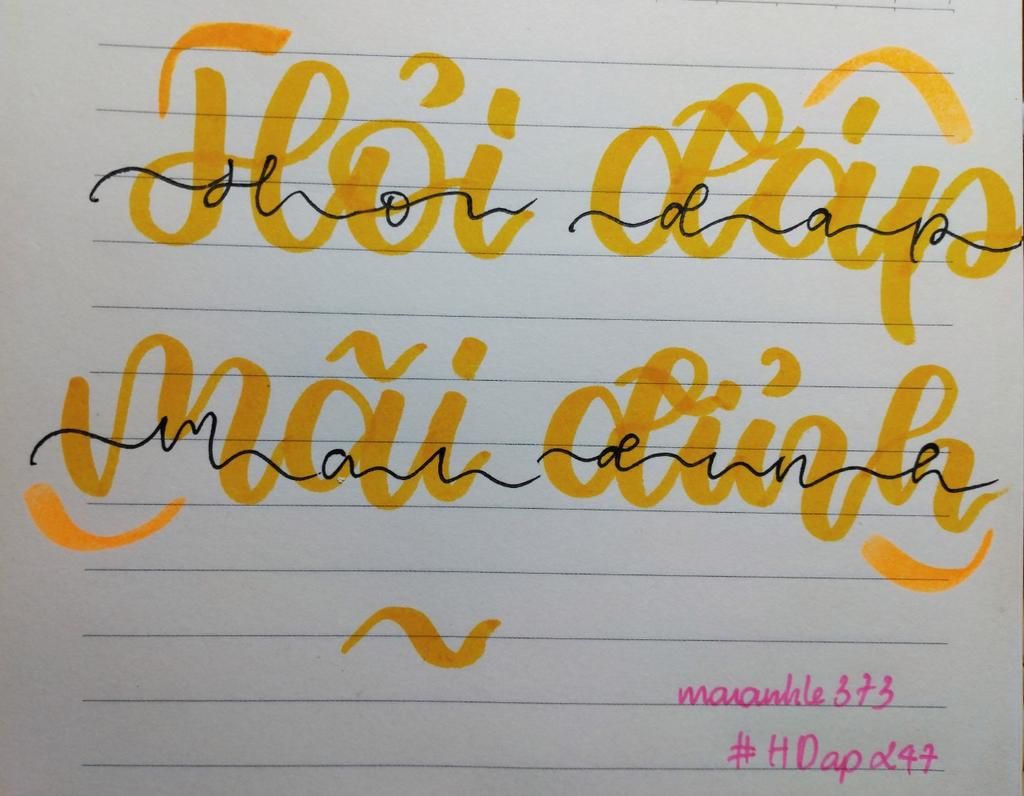 Hỏi đáp
Hoi đap
mãi đỉnh
mai đinh
maianhle373
#HDap247